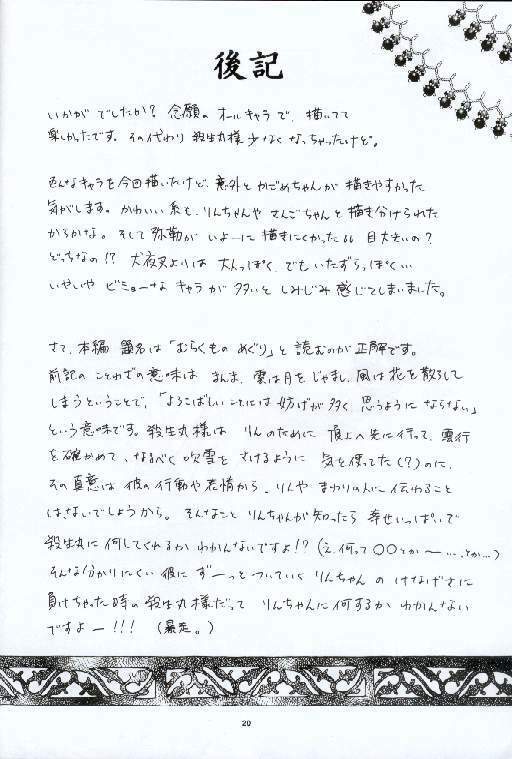 後記
いかが でしたか? 念願の オールキャラ で、描いてて
楽しかったです。その代わり 殺生丸様 少なく なっちゃったけど。
色んなキャラを今回描いたけど、意外と かごめちゃんが 描きやすかった
気がします。かわいい系も、りんちゃんや さんごちゃんと 描き分けられた
からかな。そして 弥勒が いよーに 描きにくかった 目大きいの?
どっちなの!? 犬夜叉よりは 大人っぽく、でも いたずらっぽく…
いやいや ビミョーな キャラ が 多いと しみじみ 感じて しまいました。
さて、本編 題名は「むらくもの めぐり」と 読むのが 正解です。
前記の ことわざの意味は まんま、雲は月を じゃまし、風は花を 散らして
しまうということで、「よろこばしい ことには 妨げが 多く 思うように ならない」
という 意味です。殺生丸様は りんのために 頂上へ先に行って、雲行
を 確かめて、なるべく 吹雪を さけるように 気を使ってた(?)のに、
その真意は 彼の 行動や 表情から、りんや まわりの人に 伝わること
はないでしょうから。そんなこと りんちゃんが 知ったら 幸せいっぱいで
殺生丸に 何してくれるか わかんないですよ!?(え、何って ○○とか ~……とか…)
そんな分かりにくい 彼に ずーっと ついていく りんちゃん の けなげさに
負けちゃった 時の 殺生丸様だって りんちゃんに 何するか わかんない
ですよー!!! (暴走。)
20